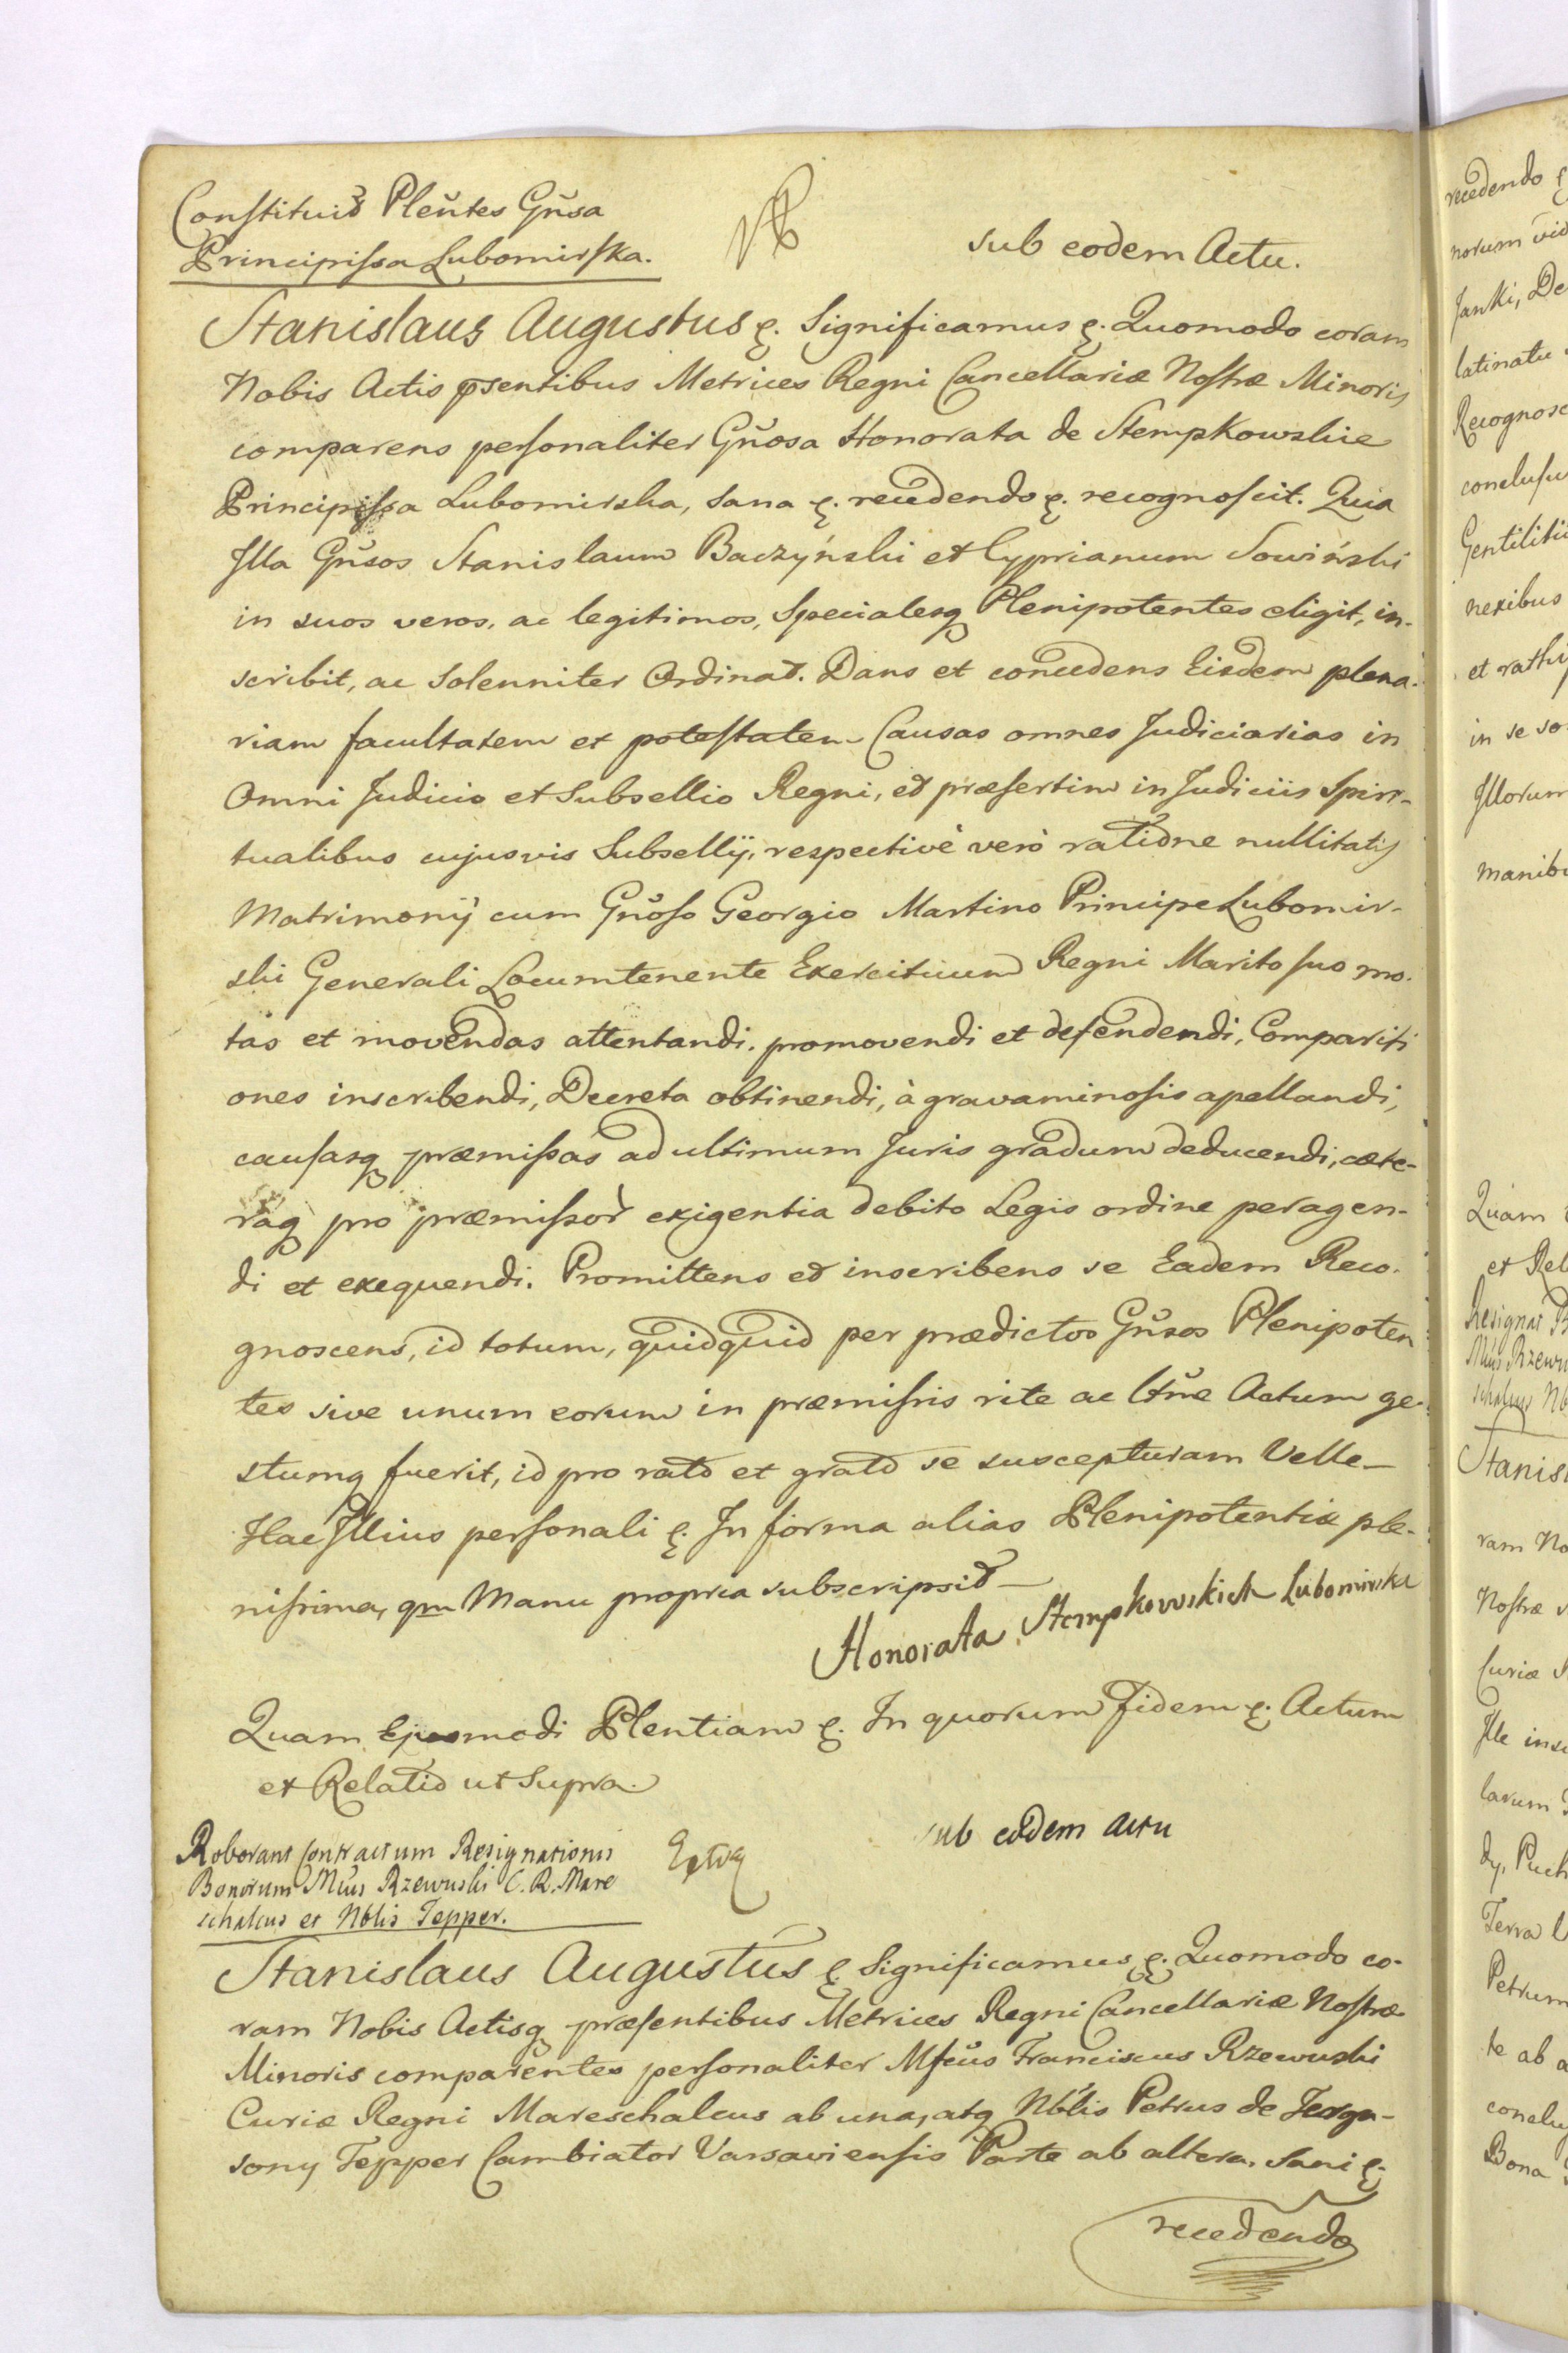 Constituit Pleñtes Gñsa
Principissa Lubomirska.
sub eodem Actu.
Stanislaus Augustus &. Significamus &. Quomodo coram
Nobis Actis pſentibus Metrices Regni Cancellariæ Noſtræ Minoris
comparens perſonaliter Gñosa Honorata de Stempkowskie
Principiſsa Lubomirska, sana &. recedendo &. recognoſcit. Quia
Illa Gñsos Stanislaum Baczyński et Cyprianum Sowiński
in suos veros, ac legitimos, Specialesq Plenipotentes eligit, in-
scribit, ac Solenniter Ordinat. Dans et concedens Eisdem plena-
riam facultatem et poteſtatem Causas omnes Judiciarias in
Omni Judicio et Subsellio Regni, et præſertim in Judiciis Spiri-
tualibus cujusvis Subsellÿ, respectivè verò ratione nullitatis
Matrimonÿ cum Gñoſo Georgio Martino Principe Lubomir-
ski Generali Locumtenente Exercituum Regni Marito ſuo mo-
tas et movendas attentandi, promovendi et defendendi, Compariti
ones inscribendi, Decreta obtinendi, à gravaminoſis apellandi,
cauſasq præmiſsas ad ultimum Juris gradum deducendi, cæte-
raq pro præmiſsor exigentia debito Legis ordine peragen-
di et exequendi. Promittens et inscribens se Eadem Reco-
gnoscens, id totum, quidquid per prædictos Gñsos Plenipoten
tes sive unum eorum in præmiſsis rite ac ltñe Actum ge-
stumq fuerit, id pro rato et grato se suscepturam Velle —
Hac Illius perſonali &. In forma alias Plenipotentiæ ple-
niſsima, qm Manu propria subscripsit —
Honorata Stempkowskich Lubomirska
Quam Ejusmodi Plentiam &. In quorum fidem &. Actum
et Relatio ut Supra.
Roborant Contractum Resignationis
Bonorum Mñus Rzewuski C. R. Mare
schalcus et Nblis Tepper.
sub eodem Actu
Stanislaus Augustus & Significamus &. Quomodo co-
ram Nobis Actisq præſentibus Metrices Regni Cancellariæ Noſtræ
Minoris comparentes perſonaliter Mfcus Franciscus Rzewuski
Curiæ Regni Mareschalcus ab una, atq Nblis Petrus de Fergu-
sony Tepper Cambiator Varsaviensis Parte ab altera, Sani &.
recedendo